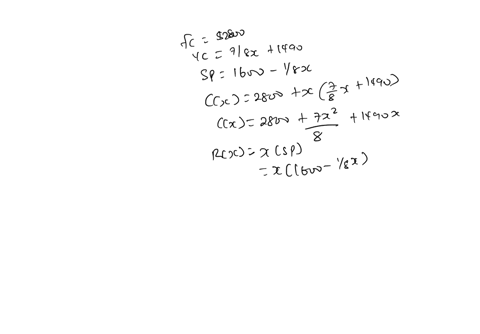 FC = $2800
VC = 7/8x + 1490
SP = 1600 - 1/8x
C(x) = 2800 + x(7/8 x + 1490)
C(x) = 2800 + 7x²/8 + 1490x
R(x) = x(SP)
= x(1600 - 1/8x)